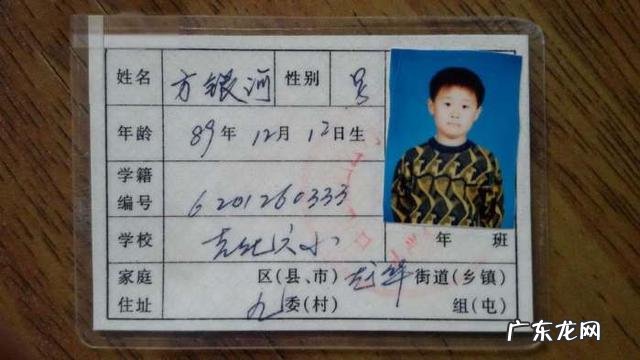 姓名 方银河 性别 男
年龄 89年12月12日生
学籍
编号 6201260333
学校 小
年 班
家庭 区(县、市) 龙华 街道(乡镇)
住址 九委(村) 组(屯)
广东龙网